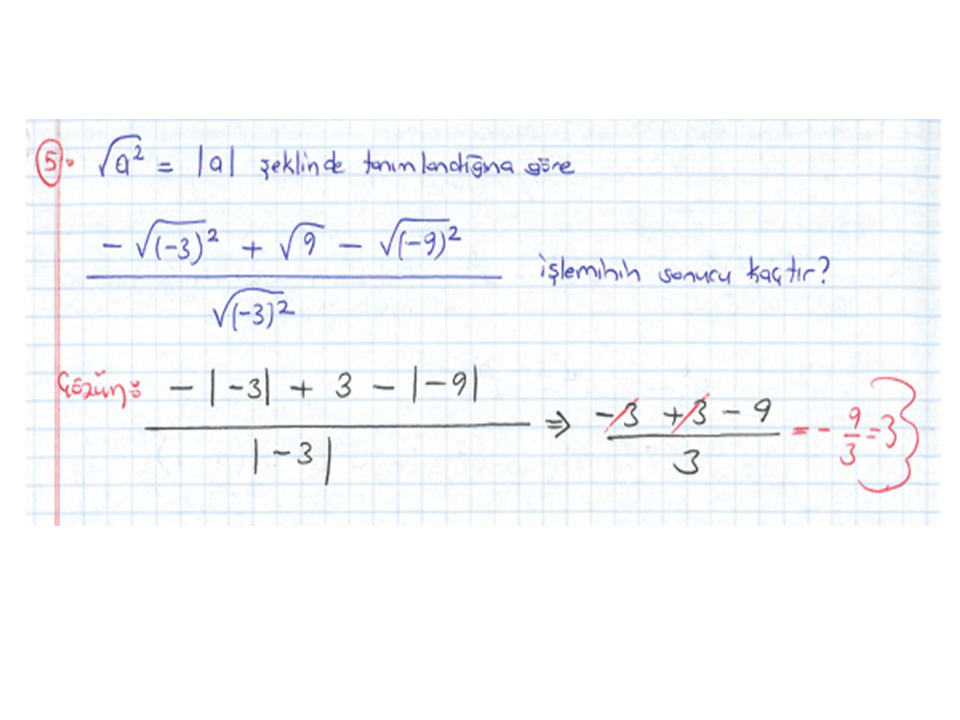 5. √a² = |a| şeklinde tanımlandığına göre
-√(-3)² + √9 - √(-9)²
işlemihih sonucu kaçtır?
√(-3)²
Çözüm: -|-3| + 3 - |-9|
|-3|
⇒ -3 +3 - 9
3
= - 9/3 = 3